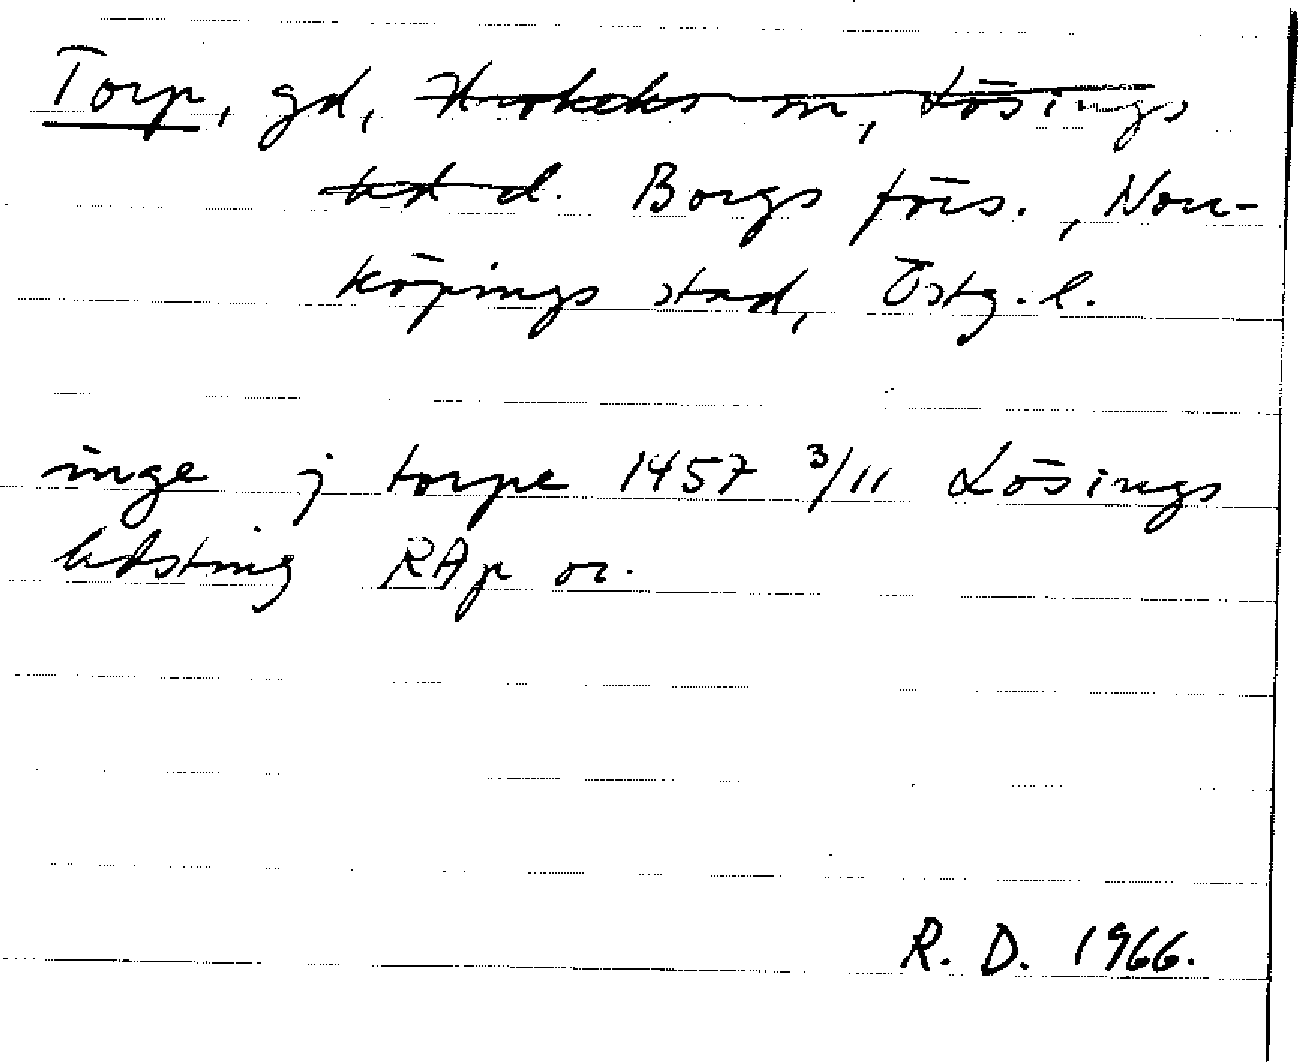 Torp, gd, Krokeks sn, Lösings
hd. Borgs förs., Norr-
köpings stad, Östg. l.
inge j torpe 1457 3/11 Lösings
hdsting RAp or.
R. D. 1966.